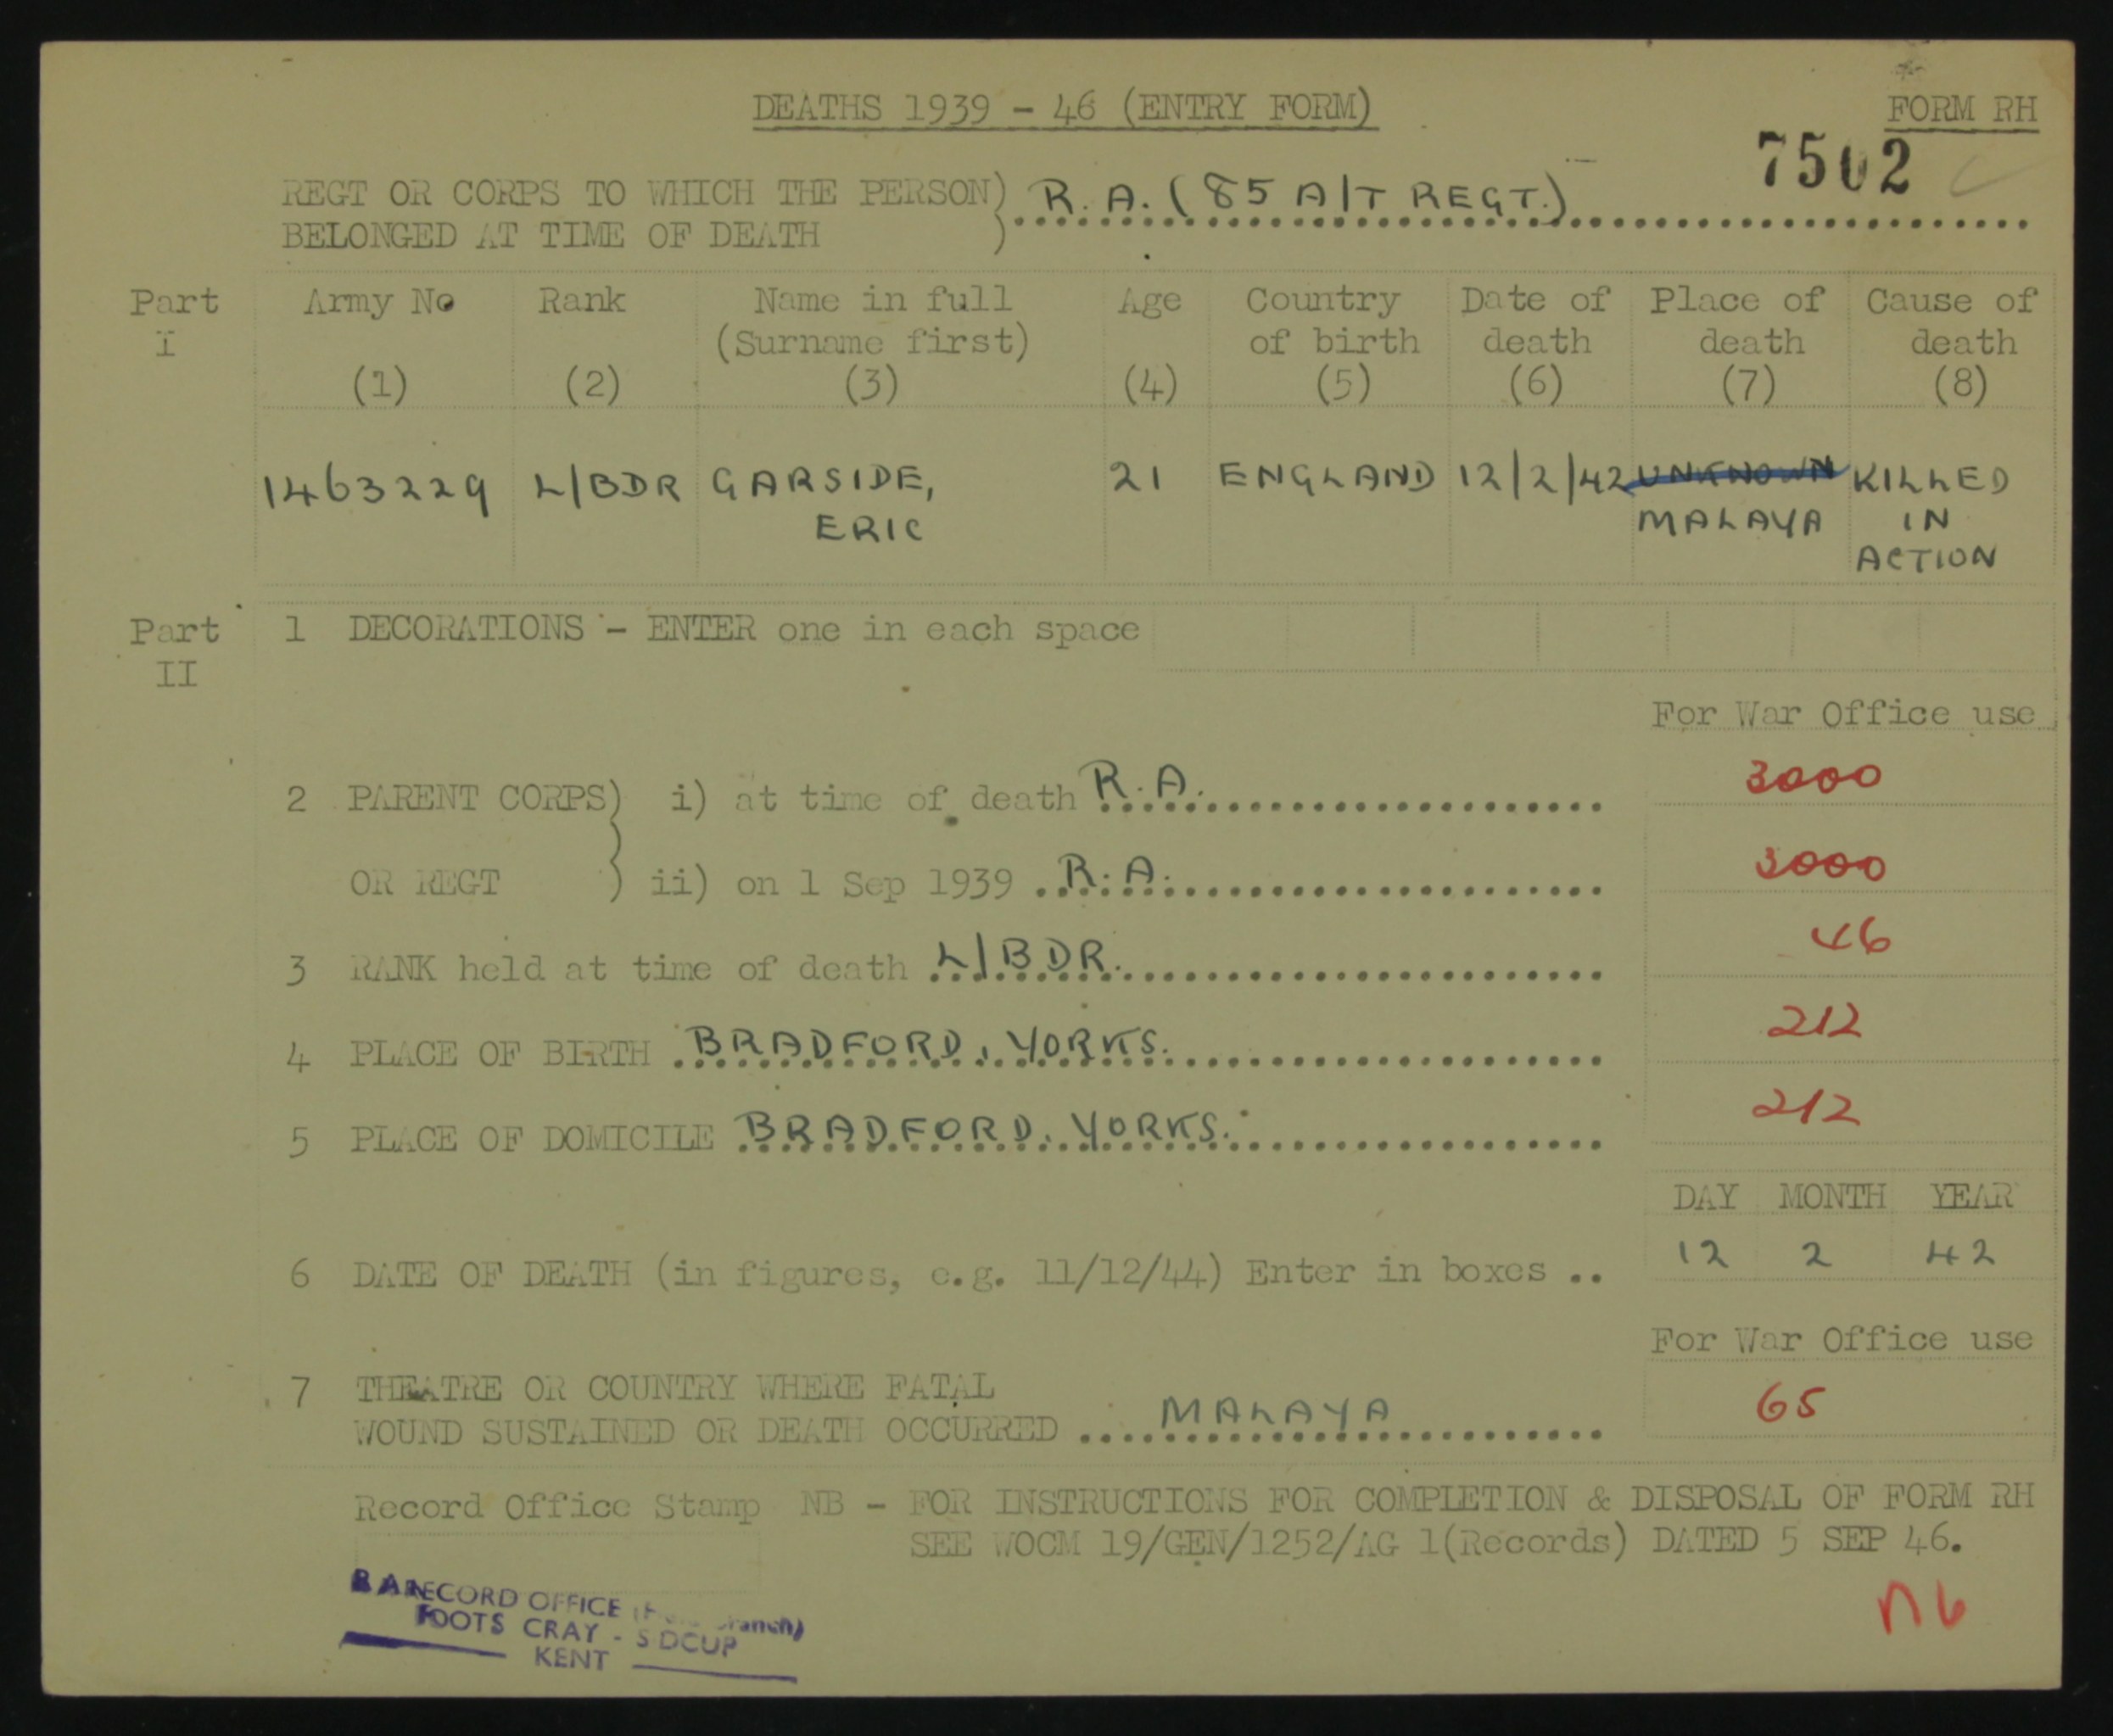 DEATHS 1939 - 46 (ENTRY FORM)
FORM RH
7502
REGT OR CORPS TO WHICH THE PERSON) R. A. (85 A/T REGT.)
BELONGED AT TIME OF DEATH )
Part I
Army No Rank Name in full Age Country Date of Place of Cause of
(Surname first) of birth death death death
(1) (2) (3) (4) (5) (6) (7) (8)
1463229 L/BDR GARSIDE, 21 ENGLAND 12/2/42 UNKNOWN KILLED
ERIC MALAYA IN
ACTION
Part II
1 DECORATIONS - ENTER one in each space
For War Office use
2 PARENT CORPS) i) at time of death R. A. 3000
OR REGT ) ii) on 1 Sep 1939 R. A. 3000
3 RANK held at time of death L/BDR. 46
4 PLACE OF BIRTH BRADFORD, YORKS. 212
5 PLACE OF DOMICILE BRADFORD, YORKS. 212
DAY MONTH YEAR
6 DATE OF DEATH (in figures, e.g. 11/12/44) Enter in boxes .. 12 2 42
For War Office use
7 THEATRE OR COUNTRY WHERE FATAL
WOUND SUSTAINED OR DEATH OCCURRED MALAYA 65
Record Office Stamp NB - FOR INSTRUCTIONS FOR COMPLETION & DISPOSAL OF FORM RH
SEE WOCM 19/GEN/1252/AG 1(Records) DATED 5 SEP 46.
RECORD OFFICE
FOOTS CRAY - SIDCUP
KENT